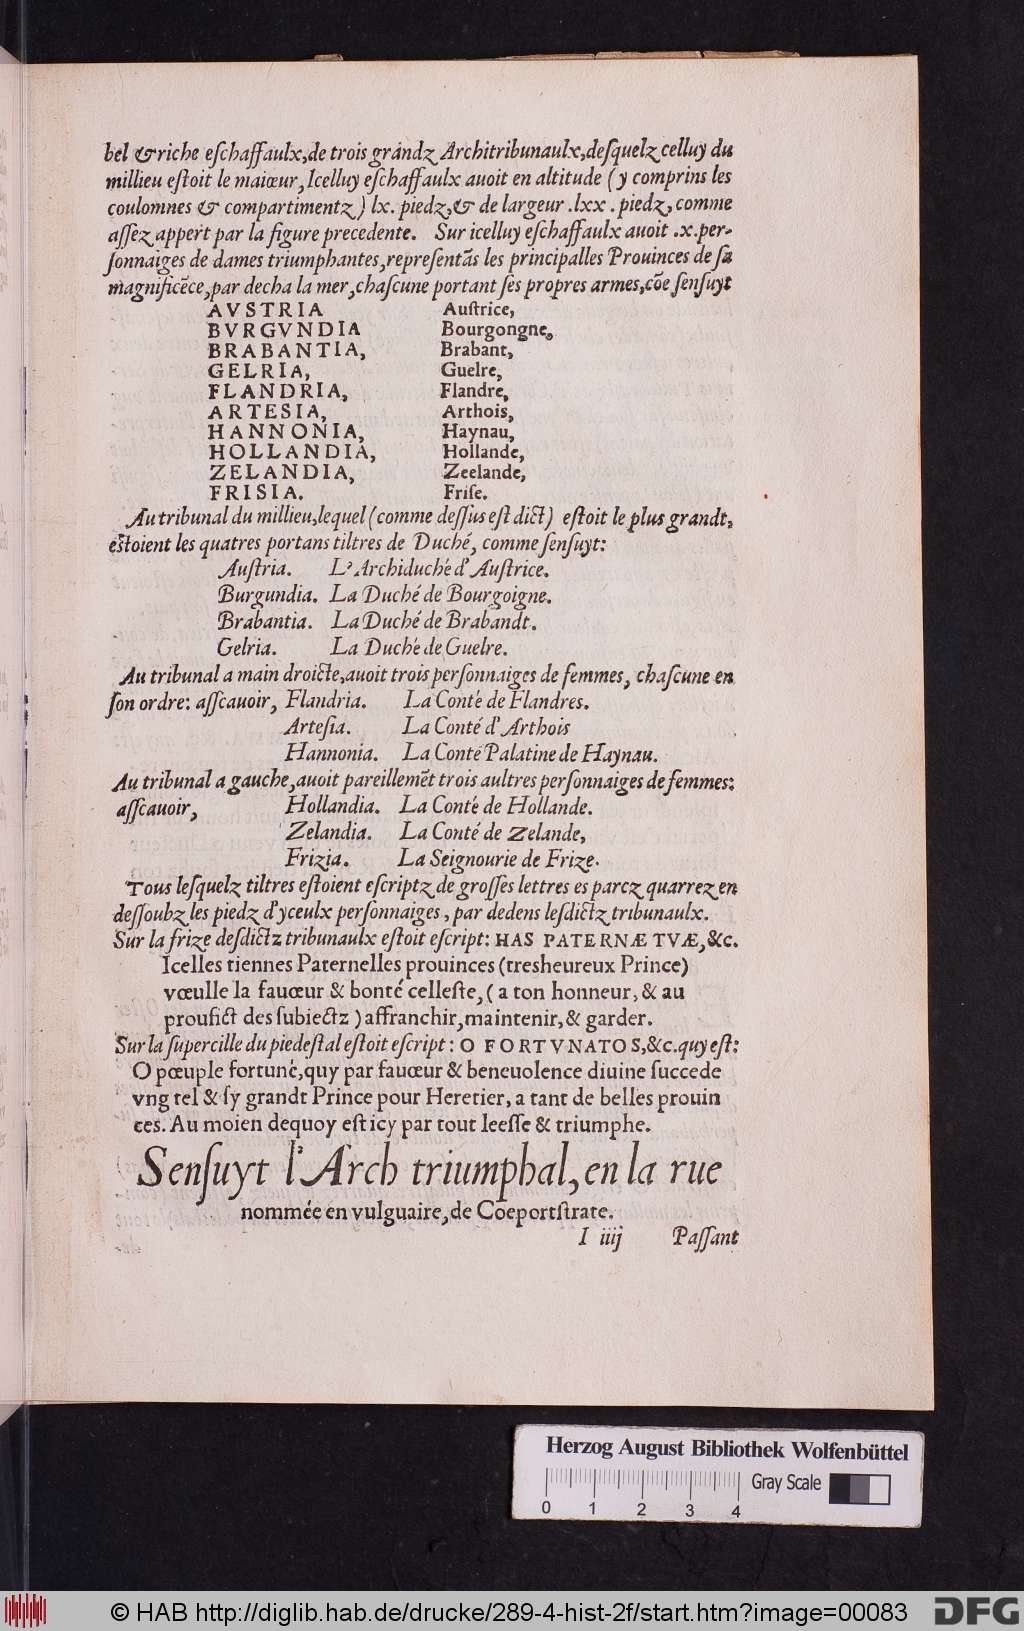 bel & riche eſchaffaulx, de trois grandz Architribunaulx, deſquelz celluy du
millieu eſtoit le maiœur, Icelluy eſchaffaulx auoit en altitude (y comprins les
coulomnes & compartimentz) lx. piedz, & de largeur .lxx. piedz, comme
aſſez appert par la figure precedente. Sur icelluy eſchaffaulx auoit .x. per-
ſonnaiges de dames triumphantes, repreſentãs les principalles Prouinces de ſa
magnificẽce, par decha la mer, chaſcune portant ſes propres armes, cõe ſenſuyt
AVSTRIA Auſtrice,
BVRGVNDIA Bourgongne,
BRABANTIA, Brabant,
GELRIA, Guelre,
FLANDRIA, Flandre,
ARTESIA, Arthois,
HANNONIA, Haynau,
HOLLANDIA, Hollande,
ZELANDIA, Zeelande,
FRISIA. Friſe.
Au tribunal du millieu, lequel (comme deſſus eſt dict) eſtoit le plus grandt,
eſtoient les quatres portans tiltres de Duché, comme ſenſuyt:
Auſtria. L'Archiduché d'Auſtrice.
Burgundia. La Duché de Bourgoigne.
Brabantia. La Duché de Brabandt.
Gelria. La Duché de Guelre.
Au tribunal a main droicte, auoit trois perſonnaiges de femmes, chaſcune en
ſon ordre: aſſcauoir, Flandria. La Conté de Flandres.
Arteſia. La Conté d'Arthois
Hannonia. La Conté Palatine de Haynau.
Au tribunal a gauche, auoit pareillemẽt trois aultres perſonnaiges de femmes:
aſſcauoir, Hollandia. La Conté de Hollande.
Zelandia. La Conté de Zelande,
Frizia. La Seignourie de Frize.
Tous leſquelz tiltres eſtoient eſcriptz de groſſes lettres es parcz quarrez en
deſſoubz les piedz d'yceulx perſonnaiges, par dedens leſdictz tribunaulx.
Sur la frize deſdictz tribunaulx eſtoit eſcript: HAS PATERNÆ TVÆ, &c.
Icelles tiennes Paternelles prouinces (tresheureux Prince)
vœulle la fauœur & bonté celleſte, (a ton honneur, & au
proufict des ſubiectz) affranchir, maintenir, & garder.
Sur la ſupercille du piedeſtal eſtoit eſcript: O FORTVNATOS, &c. quy eſt:
O pœuple fortuné, quy par fauœur & beneuolence diuine ſuccede
vng tel & ſy grandt Prince pour Heretier, a tant de belles prouin
ces. Au moien dequoy eſt icy par tout leeſſe & triumphe.
Senſuyt l'Arch triumphal, en la rue
nommée en vulguaire, de Coeportſtrate.
I iiij Paſſant
Herzog August Bibliothek Wolfenbüttel
Gray Scale
0 1 2 3 4
© HAB http://diglib.hab.de/drucke/289-4-hist-2f/start.htm?image=00083
DFG